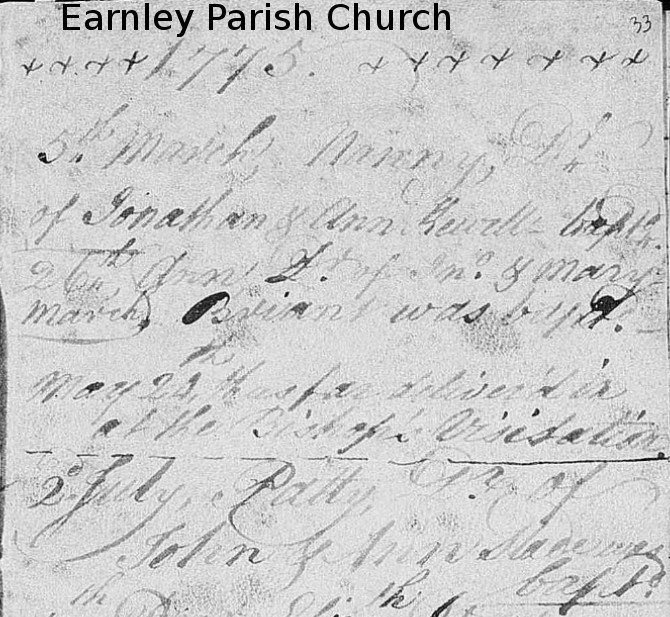 Earnley Parish Church
33
× × × × 1775. × × × × × × ×
5th March, Nanny, Dr
of Jonathan & Ann Hewell baptd.
26th, Ann, Dr. of Jno. & Mary
March, Briant was bapt.
th
May 22, thus far deliver'd in
at the Bishop's Visitation
2d July, Patty, Dr. of
John & Ann Slade was
baptd.